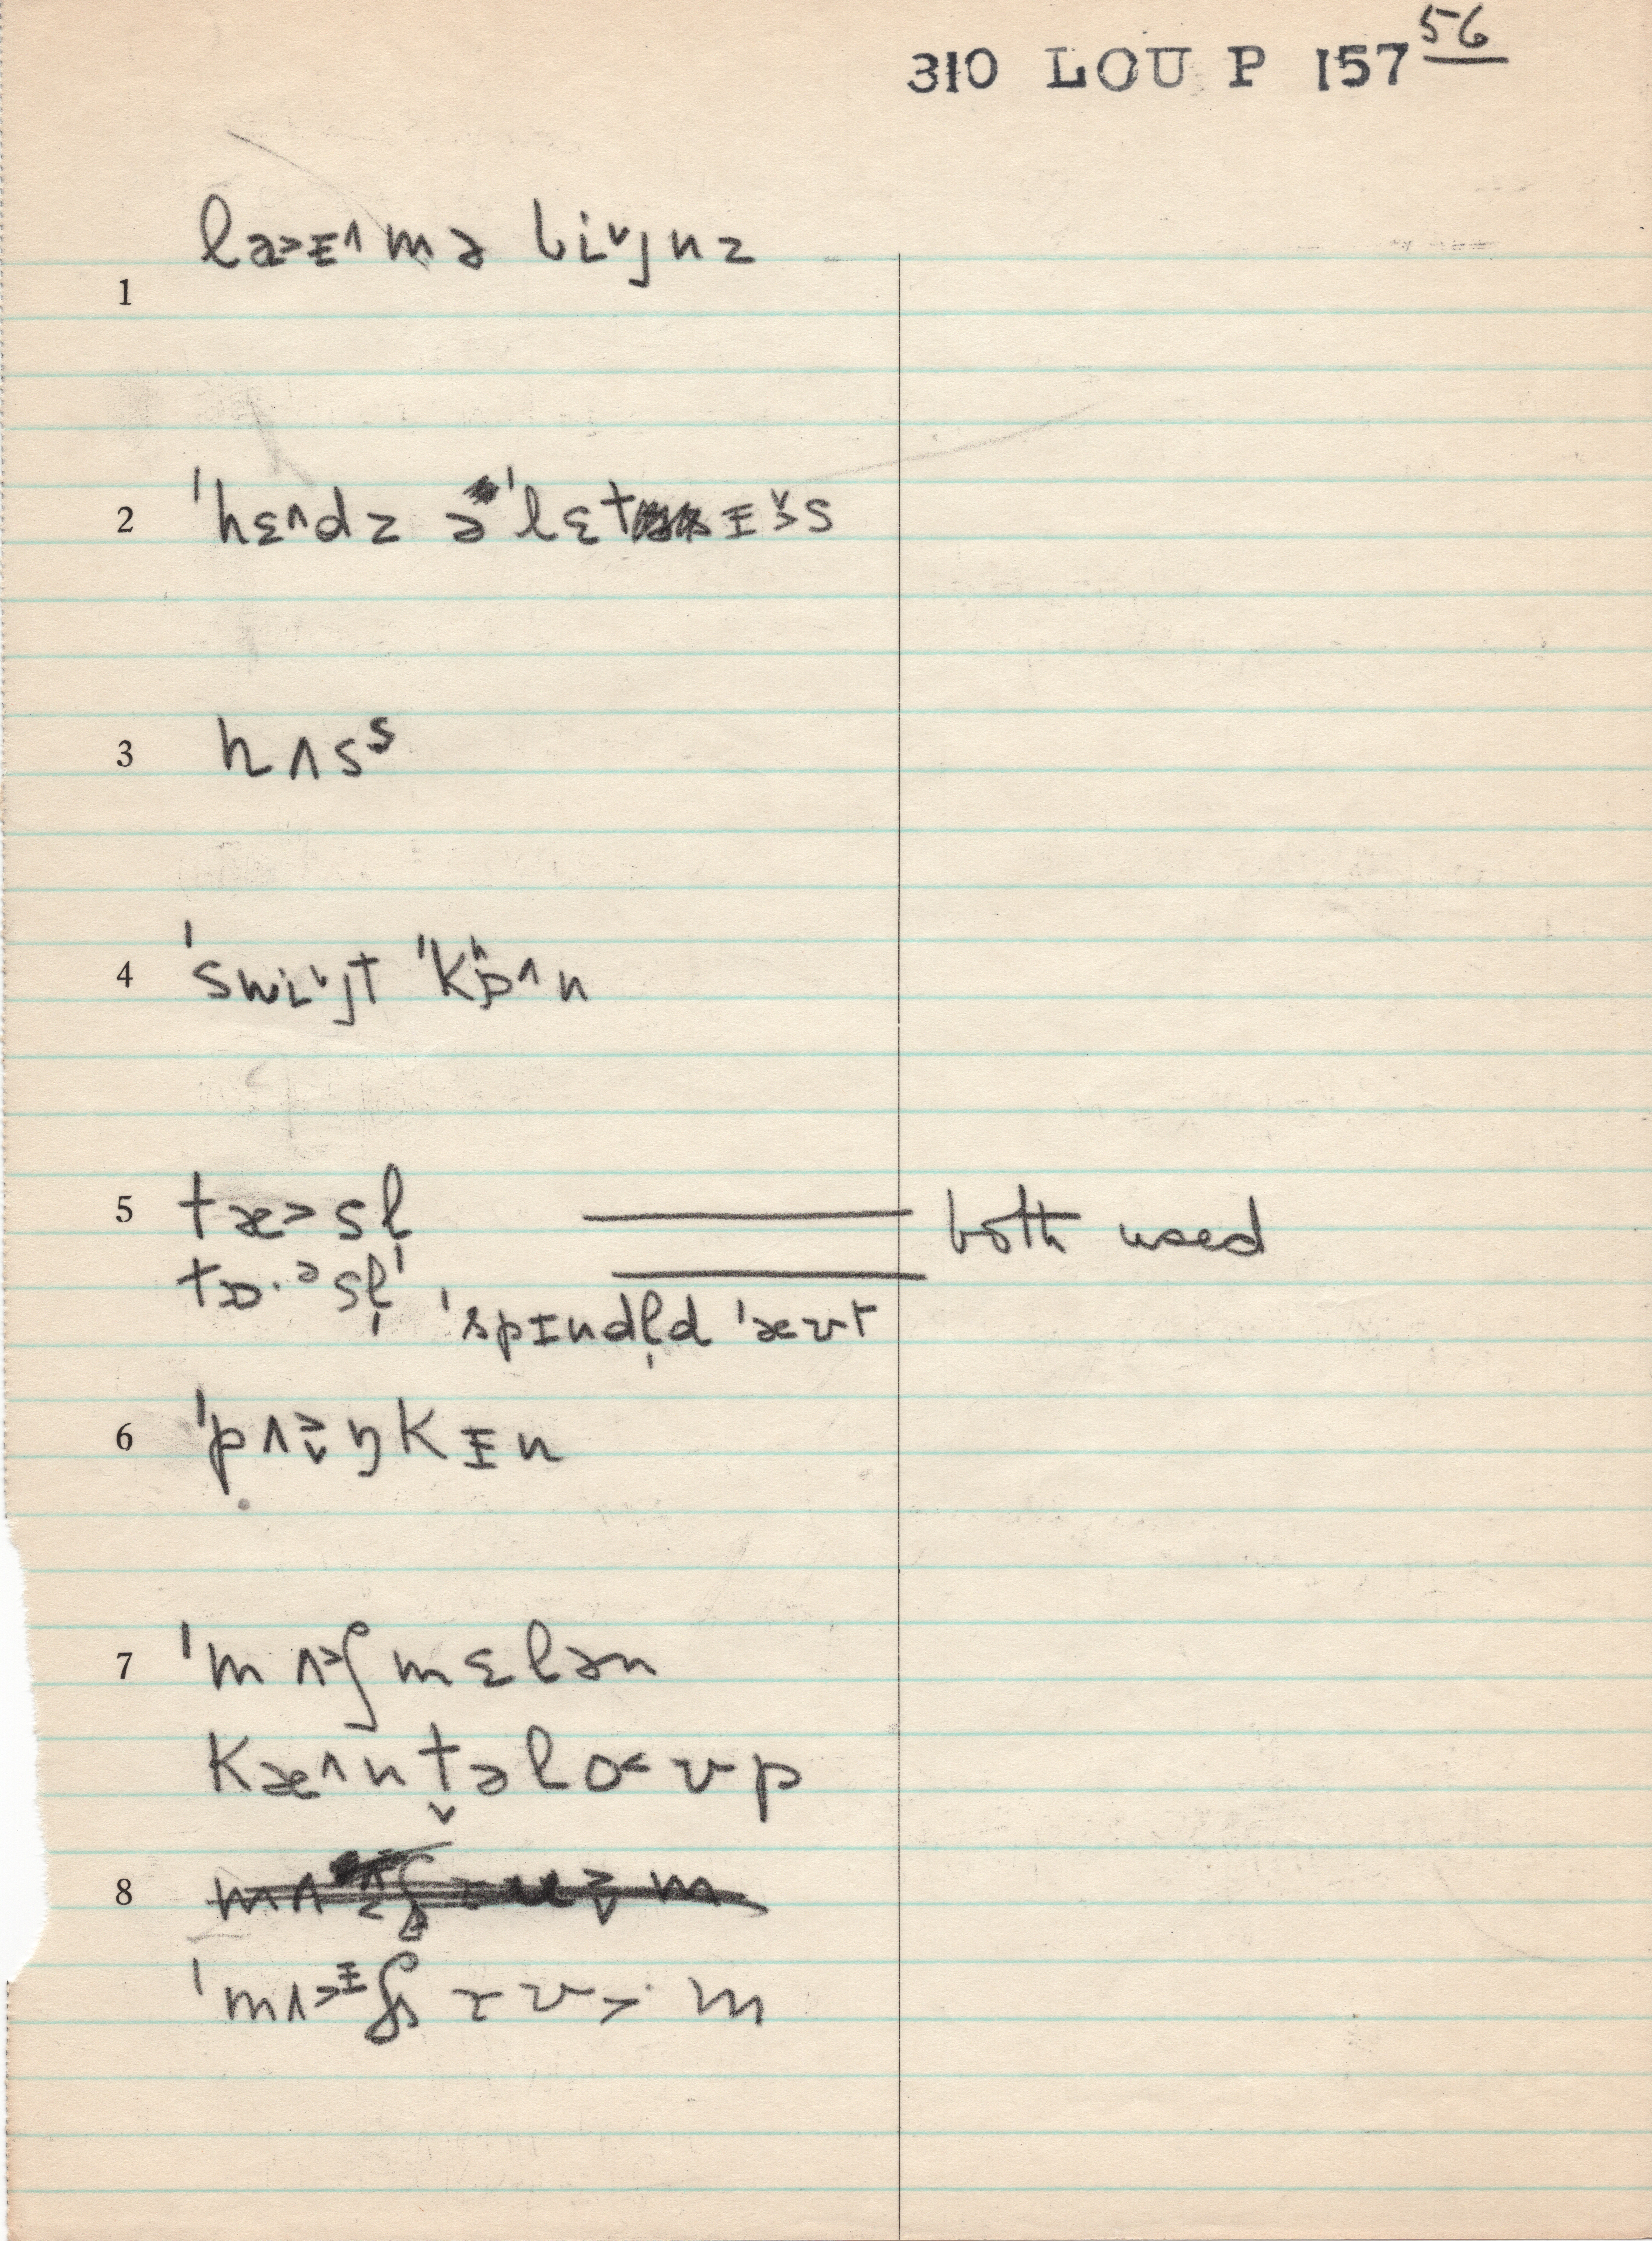 56
310 LOU P 157
1 laɜ>ɪ^mə bi˅ɟnz
2 ˈhɛ^dz əˈlɛtɪ˅>s
3 hʌsˢ
4 ˈswi˅ɟt ˈkʰɔ^n
5 tæ>sl̩ both used
tɒ·ᵊsl̩ˈ ˈspɪndl̩d ˈæʊt
6 ˈpʌ>˅ŋkɪn
7 ˈmʌ>ʃmɛlən
kæ^nt˅əlo<ʊp
8
ˈmʌ>ᶦʃrʊ>·m